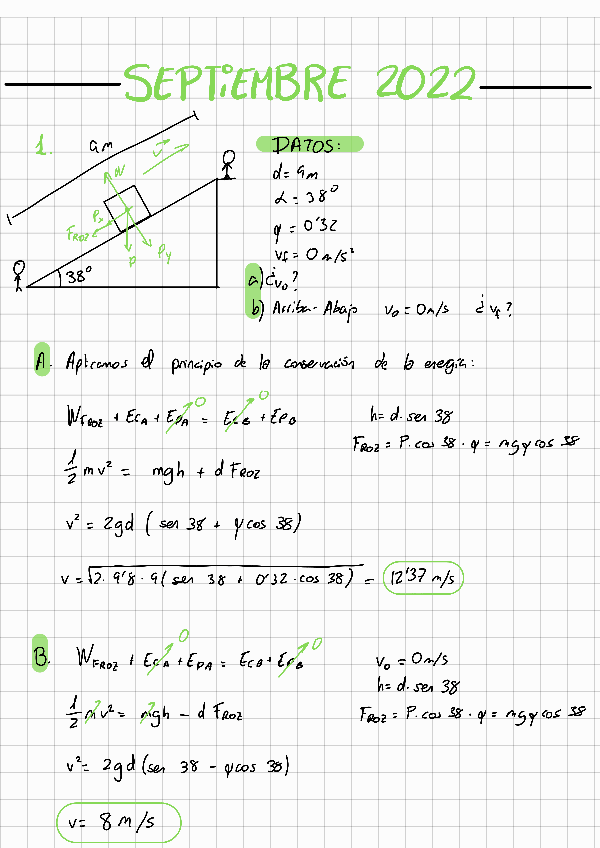 SEPTIEMBRE 2022
1.
9m
v
N
Px
FROZ
P
Py
38°
DATOS:
d= 9m
α = 38°
φ = 0'32
vf = 0 m/s²
a) ¿v₀?
b) Arriba-Abajo v₀ = 0m/s ¿vf?
A. Aplicamos el principio de la conservación de la energía:
WFROZ + ECA + EPA = ECB + EPB
0 0
h= d· sen 38
FROZ = P. cos 38 · φ = mgφ cos 38
1/2 mv² = mgh + d FROZ
v² = 2gd ( sen 38 + φ cos 38)
v = √2· 9'8 · 9( sen 38 + 0'32 · cos 38) = 12'37 m/s
B. WFROZ + ECA + EPA = ECB + EPB
0 0
v₀ = 0m/s
h= d· sen 38
FROZ = P. cos 38 · φ = mgφ cos 38
1/2 mv² = mgh - d FROZ
v² = 2gd (sen 38 - φ cos 38)
v= 8 m/s